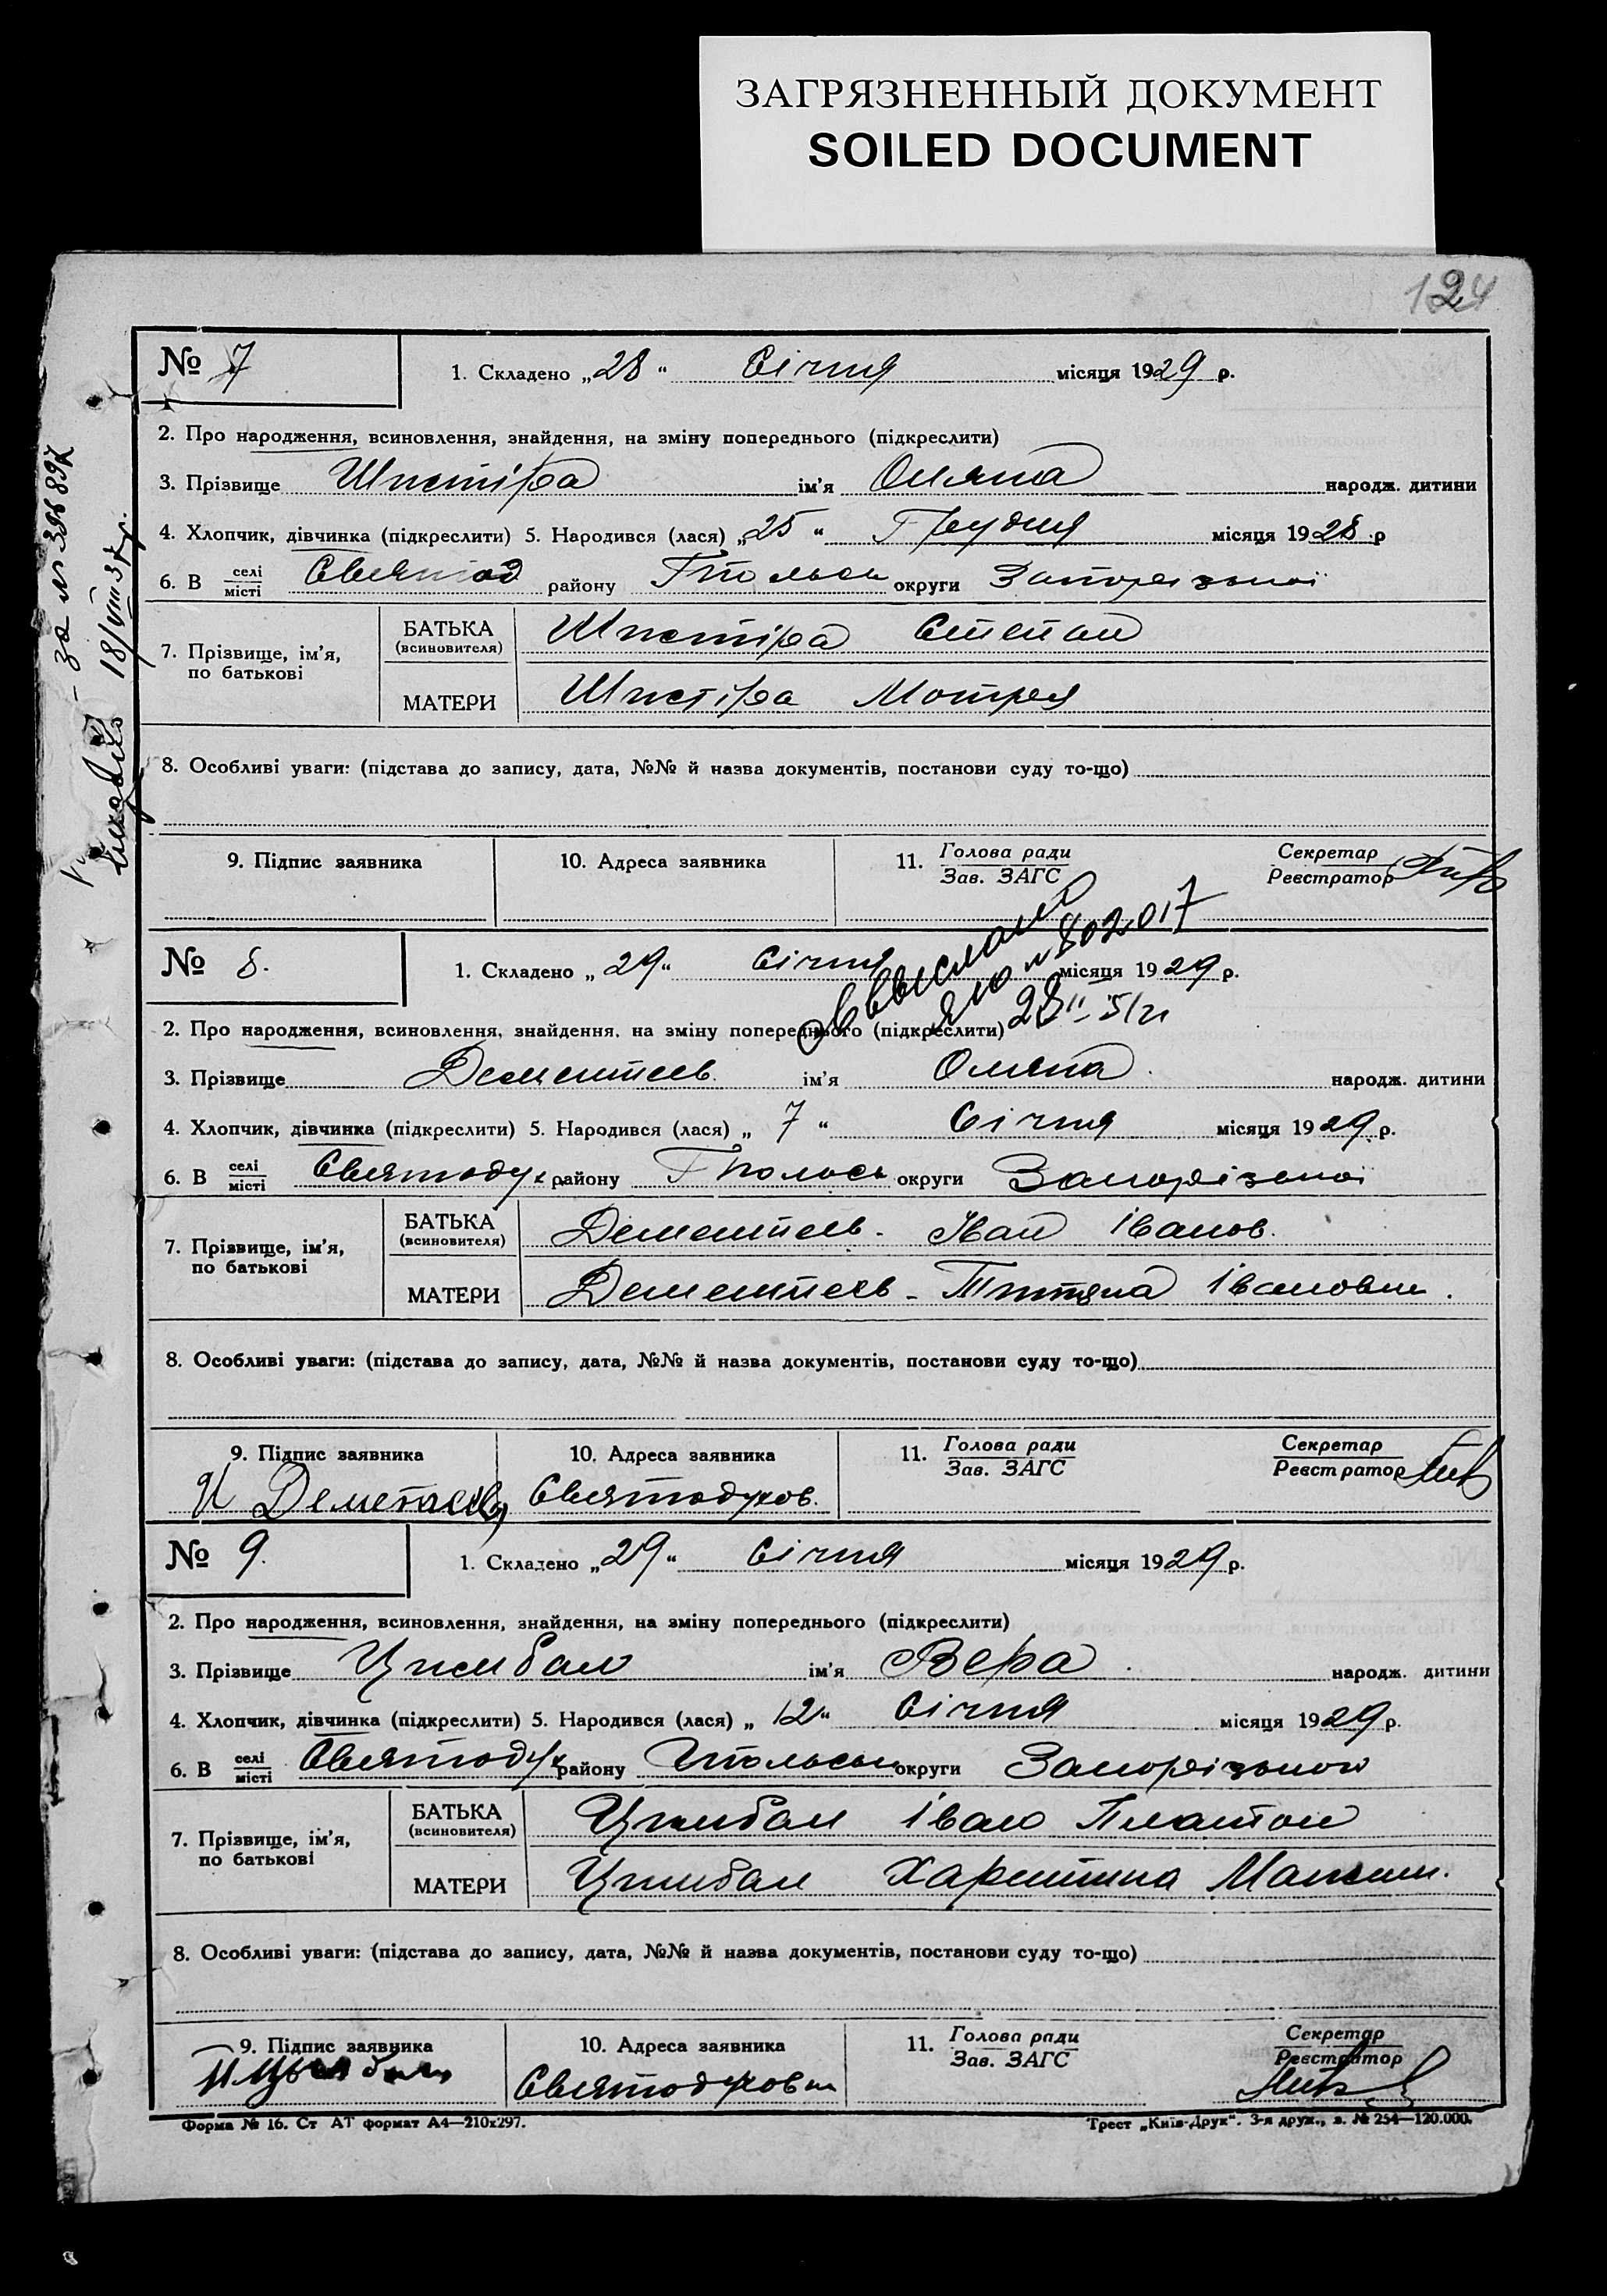 ЗАГРЯЗНЕННЫЙ ДОКУМЕНТ
SOILED DOCUMENT
124
№ 7
1. Складено „28“ Січня місяця 1929 р.
2. Про народження, всиновлення, знайдення, на зміну попереднього (підкреслити)
3. Прізвище Шпетіра ім'я Оляна народж. дитини
4. Хлопчик, дівчинка (підкреслити) 5. Народився (лася) „25“ Грудня місяця 1928 р
6. В селі місті Святод району округи Запорізької
7. Прізвище, ім'я, по батькові
БАТЬКА (всиновителя) Шпетіра Степан
МАТЕРИ Шпетіра Мотря
8. Особливі уваги: (підстава до запису, дата, №№ й назва документів, постанови суду то-що)
9. Підпис заявника
10. Адреса заявника
11. Голова ради Зав. ЗАГС
Секретар Реєстратор
за № 396897
18/VIII 37 р.
№ 802017
28/II-51 г
№ 8.
1. Складено „29“ Січня місяця 1929 р.
2. Про народження, всиновлення, знайдення, на зміну попереднього (підкреслити)
3. Прізвище Дементеев. ім'я Оляна. народж. дитини
4. Хлопчик, дівчинка (підкреслити) 5. Народився (лася) „7“ Січня місяця 1929 р.
6. В селі місті Святодух району округи Запорізької
7. Прізвище, ім'я, по батькові
БАТЬКА (всиновителя) Дементеев - Іван Іванов.
МАТЕРИ Дементеев - Титяна Івановна.
8. Особливі уваги: (підстава до запису, дата, №№ й назва документів, постанови суду то-що)
9. Підпис заявника И Деметаев
10. Адреса заявника Святодухов.
11. Голова ради Зав. ЗАГС
Секретар Реєстратор
№ 9.
1. Складено „29“ Січня місяця 1929 р.
2. Про народження, всиновлення, знайдення, на зміну попереднього (підкреслити)
3. Прізвище Цимбал ім'я Вера. народж. дитини
4. Хлопчик, дівчинка (підкреслити) 5. Народився (лася) „12“ Січня місяця 1929 р.
6. В селі місті Святодух району округи Запорізької
7. Прізвище, ім'я, по батькові
БАТЬКА (всиновителя) Цимбал Іван Платон
МАТЕРИ Цимбал Харитина Максим.
8. Особливі уваги: (підстава до запису, дата, №№ й назва документів, постанови суду то-що)
9. Підпис заявника
10. Адреса заявника Святодуховка
11. Голова ради Зав. ЗАГС
Секретар Реєстратор
Форма № 16. Ст АТ формат А4—210х297.
Трест „Київ-Друк“. 3-я друк., з. № 254—120.000.